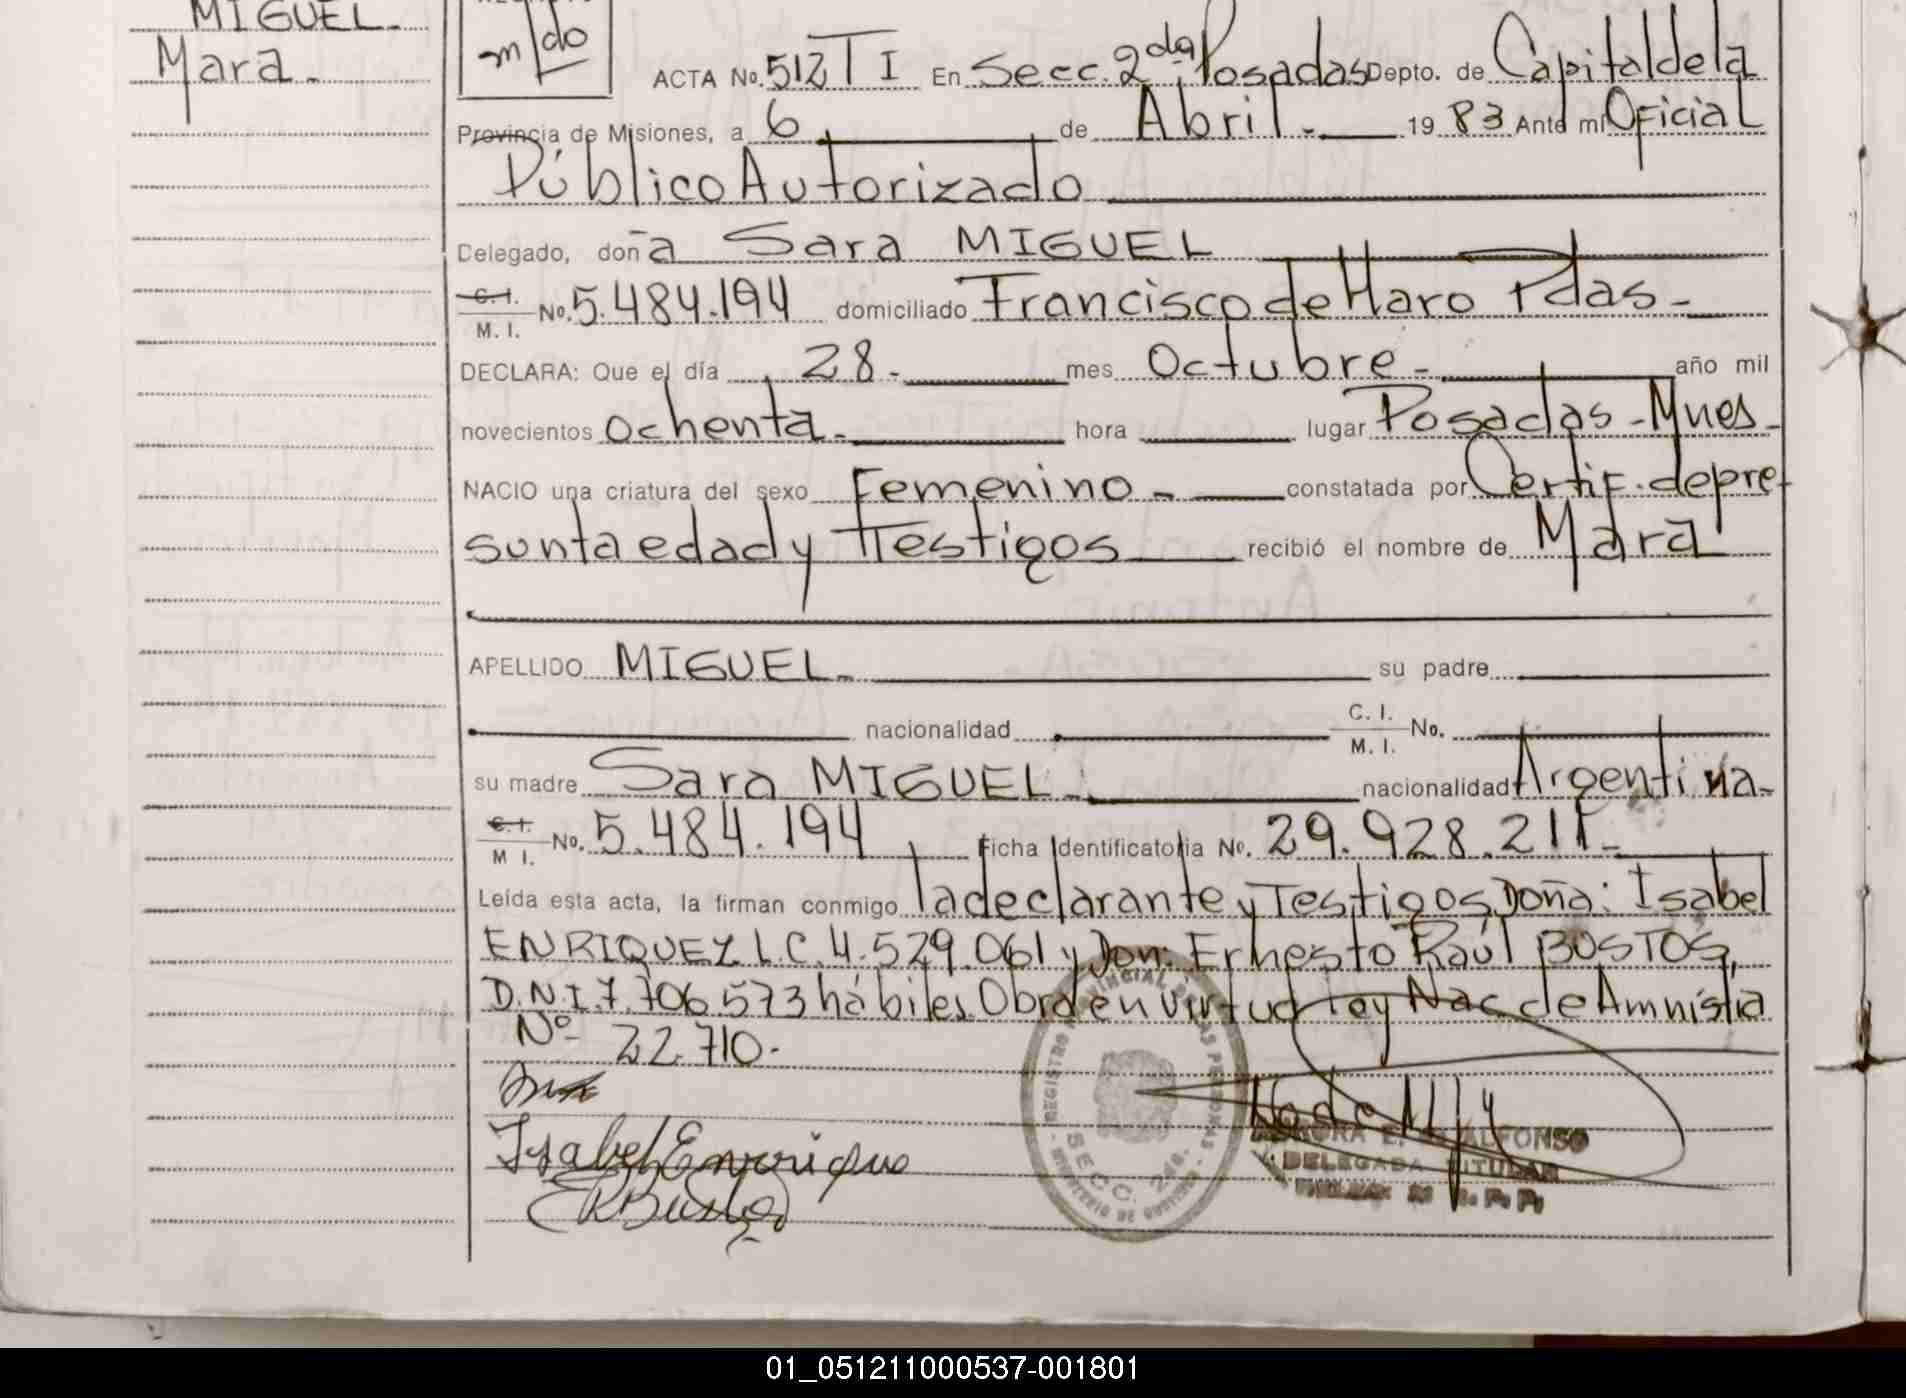 MIGUEL-
Mara-
m/do
ACTA No. 512 T I En Secc. 2da Posadas Depto. de Capital de la
Provincia de Misiones, a 6 de Abril.- 19 83 Ante mí Oficial
Público Autorizado
Delegado, doña Sara MIGUEL
C.I. M. I. No. 5.484.194 domiciliado Francisco de Haro Pdas-
DECLARA: Que el día 28- mes Octubre- año mil
novecientos ochenta- hora lugar Posadas-Mnes-
NACIO una criatura del sexo Femenino- constatada por Certif. de pre-
sunta edad y Testigos recibió el nombre de Mara
APELLIDO MIGUEL- su padre
nacionalidad C. I. M. I. No.
su madre Sara MIGUEL- nacionalidad Argentina-
C.I. M I. No. 5.484.194 Ficha Identificatoria No. 29.928.211-
Leída esta acta, la firman conmigo la declarante y Testigos Doña: Isabel
ENRIQUEZ L.C. 4.529.061 y Don: Ernesto Raúl BUSTOS,
D.N.I. 7.706.573 hábiles. Obrd en virtud ley Nac de Amnistia
Nº 22.710-
Isabel Enrique
ERBustos
REGISTRO PROVINCIAL DE LAS PERSONAS
SECC. 2da.
MINISTERIO DE GOBIERNO
ALFONSO
DELEGADA TITULAR
01_051211000537-001801